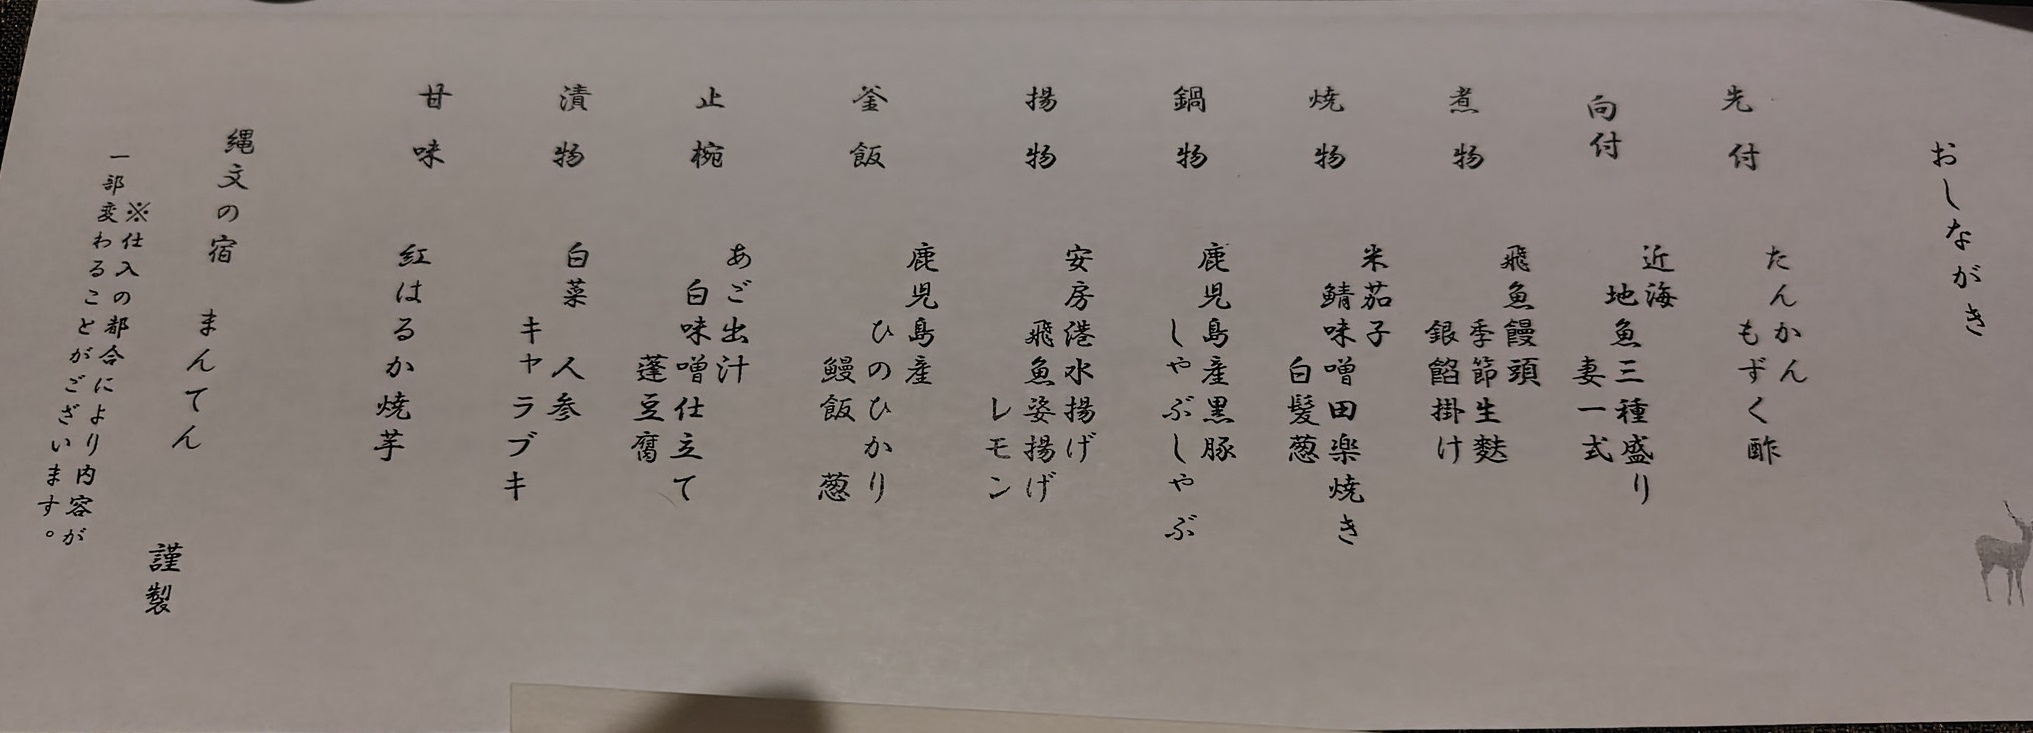 おしながき
先付
たんかん
もずく酢
向付
近海
地魚三種盛り
妻一式
煮物
飛魚饅頭
季節生麩
銀餡掛け
焼物
米茄子
鯖味噌田楽焼き
白髪葱
鍋物
鹿児島産黒豚
しゃぶしゃぶ
揚物
安房港水揚げ
飛魚姿揚げ
レモン
釜飯
鹿児島産
ひのひかり
鰻飯 葱
止椀
あご出汁
白味噌仕立て
蓬豆腐
漬物
白菜 人参
キャラブキ
甘味
紅はるか焼芋
縄文の宿 まんてん 謹製
※仕入の都合により内容が
一部変わることがございます。